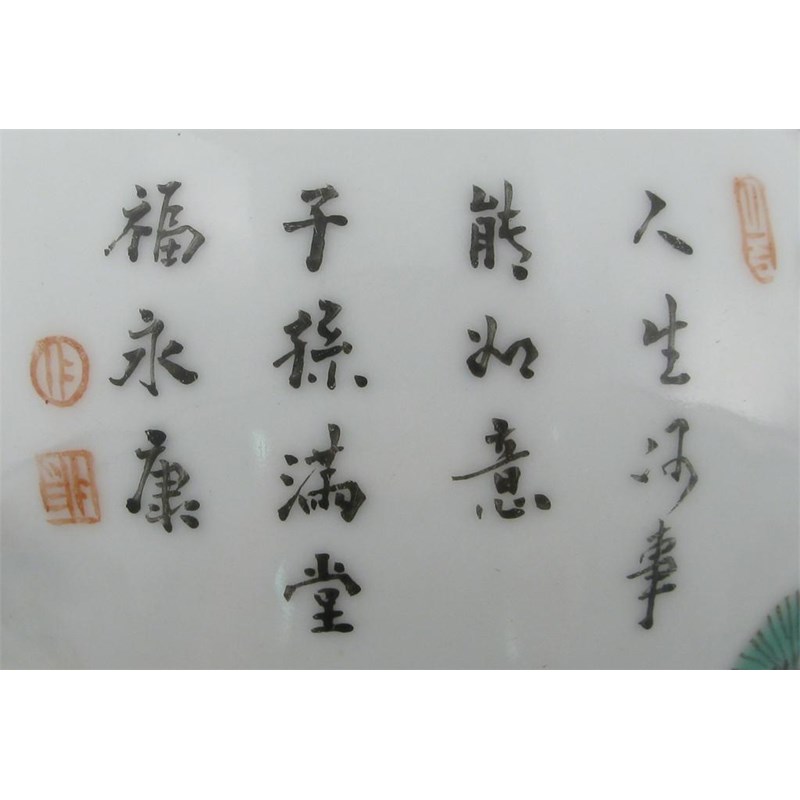 人生何事
能如意
子孫滿堂
福永康